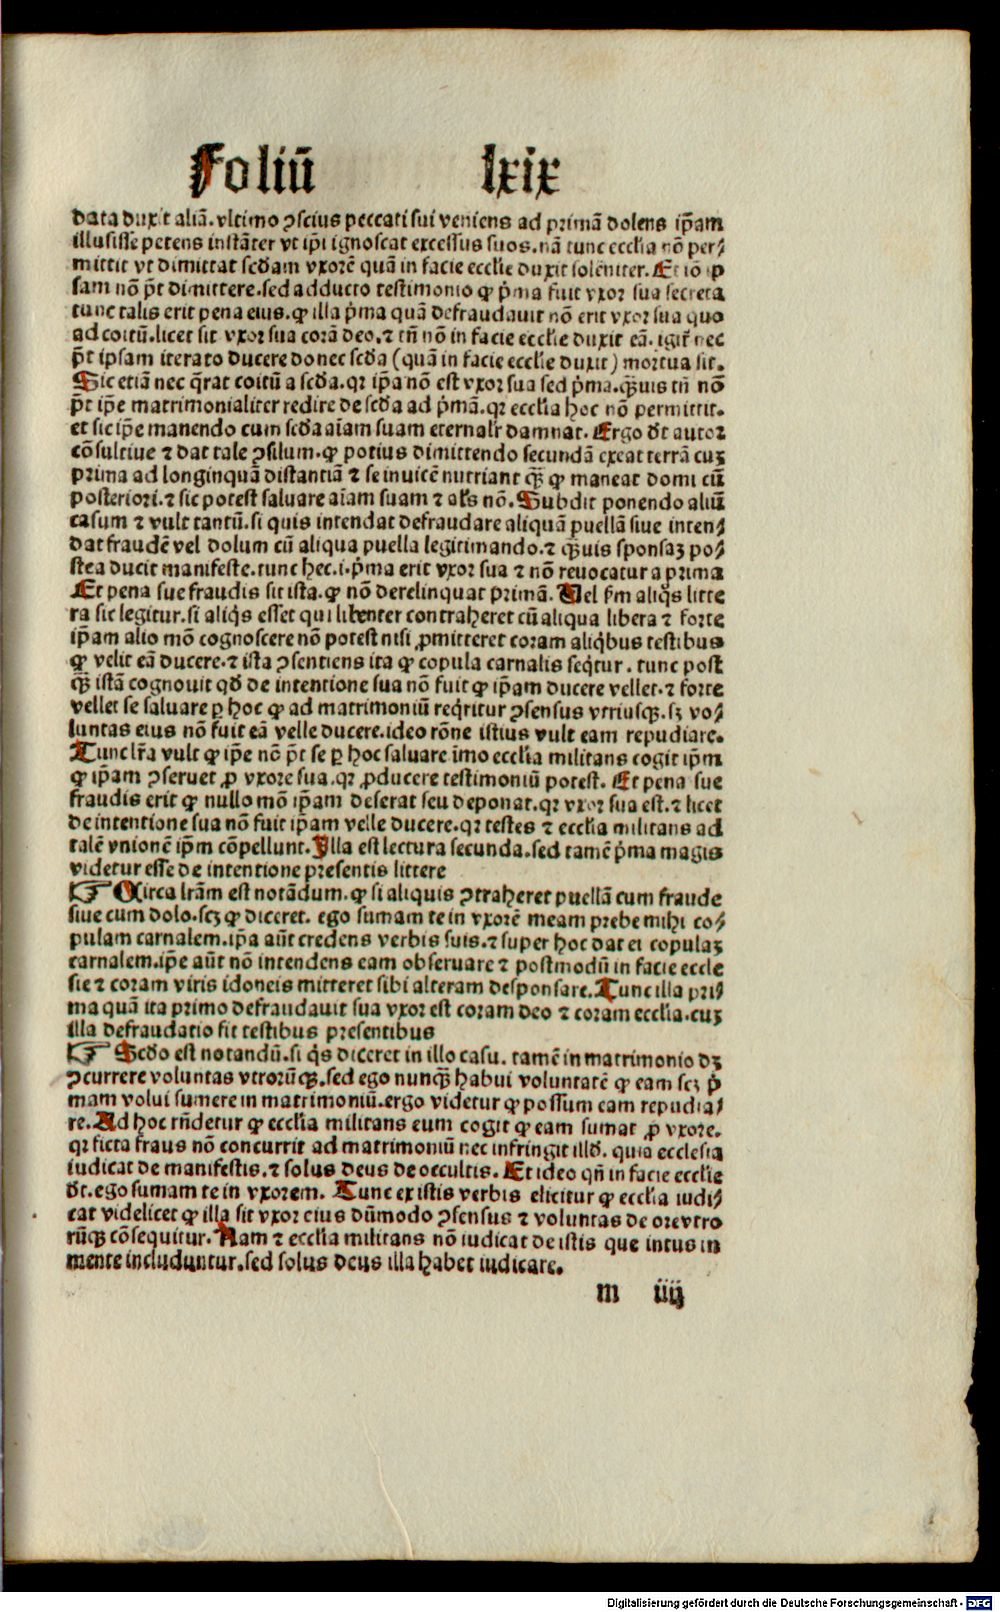 Foliū lxix
data duxit aliā. vltimo ꝯscius peccati sui veniens ad primā dolens ip̄am
illusisse petens instāter vt ip̄i ignoscat excessus suos. nā tunc ecclia nō per⸗
mittit vt dimittat scđam vxorē quā in facie ecclie duxit solēniter. Et iō p̄
sam nō p̄t dimittere. sed adducto testimonio ꝙ p̍ma fuit vxor sua secreta
tunc talis erit pena eius. ꝙ illa p̍ma quā defraudauit nō erit vxor sua quo
ad coitū. licet sit vxor sua corā deo. ⁊ tn̄ nō in facie ecclie duxit eā. igit̄ nec
p̄t ipsam iterato ducere donec scđa (quā in facie ecclie duxit) mortua sit.
Sic etiā nec q̄rat coitū a scđa. qꝛ ip̄a nō est vxor sua sed p̍ma. q̄ꝫuis tn̄ nō
p̄t ip̄e matrimonialiter redire de scđa ad p̍mā. qꝛ ecclia hoc nō permittit.
et sic ip̄e manendo cum scđa aīam suam eternalr̄ damnat. Ergo đt autor
cōsultiue ⁊ dat tale ꝯsilum. ꝙ potius dimittendo secundā exeat terrā cuꝫ
prima ad longinquā distantiā ⁊ se inuicē nutriant q̄ꝫ ꝙ maneat domi cū
posteriori. ⁊ sic potest saluare aīam suam ⁊ al̄s nō. Subdit ponendo aliū
casum ⁊ vult tantū. si quis intendat defraudare aliquā puellā siue inten⸗
dat fraudē vel dolum cū aliqua puella legitimando. ⁊ q̄ꝫuis sponsaꝫ po⸗
stea ducit manifeste. tunc hec .i. p̍ma erit vxor sua ⁊ nō reuocatur a prima
Et pena sue fraudis sit ista. ꝙ nō derelinquat primā. Vel ẜm aliq̍s litte
ra sic legitur. si aliq̍s esset qui libenter contraheret cū aliqua libera ⁊ forte
ip̄am alio mō cognoscere nō potest nisi ꝓmitteret coram aliq̍bus testibus
ꝙ velit eā ducere. ⁊ ista ꝯsentiens ita ꝙ copula carnalis seq̍tur. tunc post
q̄ꝫ istā cognouit qđ de intentione sua nō fuit ꝙ ip̄am ducere vellet. ⁊ forte
vellet se saluare ꝑ hoc ꝙ ad matrimoniū req̍ritur ꝯsensus vtriusqꝫ. sꝫ vo⸗
luntas eius nō fuit eā velle ducere. ideo rōne istius vult eam repudiare.
Tunc lr̄a vult ꝙ ip̄e nō p̄t se ꝑ hoc saluare īmo ecclia militans cogit ip̄m
ꝙ ip̄am ꝯseruet ꝓ vxore sua. qꝛ ꝓducere testimoniū potest. Et pena sue
fraudis erit ꝙ nullo mō ip̄am deserat seu deponat. qꝛ vxor sua est. ⁊ licet
de intentione sua nō fuit ip̄am velle ducere. qꝛ testes ⁊ ecclia militans ad
talē vnionē ip̄m cōpellunt. Illa est lectura secunda. sed tamē p̍ma magis
videtur esse de intentione presentis littere
☞ Circa lr̄am est notādum. ꝙ si aliquis ꝯtraheret puellā cum fraude
siue cum dolo. scꝫ ꝙ diceret. ego sumam te in vxorē meam prebe mihi co⸗
pulam carnalem. ip̄a aūt credens verbis suis. ⁊ super hoc dat ei copulaꝫ
carnalem. ip̄e aūt nō intendens eam obseruare ⁊ postmodū in facie eccle
sie ⁊ coram viris idoneis mitteret sibi alteram desponsare. Tunc illa pri⸗
ma quā ita primo defraudauit sua vxor est coram deo ⁊ coram ecclia. cuꝫ
illa defraudatio fit testibus presentibus
☞ Scđo est notandū. si q̍s diceret in illo casu. tamē in matrimonio dꝫ
ꝯcurrere voluntas vtrorūqꝫ. sed ego nunq̄ꝫ habui voluntatē ꝙ eam scꝫ p̍
mam volui sumere in matrimoniū. ergo videtur ꝙ possum eam repudia⸗
re. Ad hoc rn̄detur ꝙ ecclia militans eum cogit ꝙ eam sumat ꝓ vxore.
qꝛ ficta fraus nō concurrit ad matrimoniū nec infringit illđ. quia ecclesia
iudicat de manifestis. ⁊ solus deus de occultis. Et ideo qn̄ in facie ecclie
đt. ego sumam te in vxorem. Tunc ex istis verbis elicitur ꝙ ecclia iudi⸗
cat videlicet ꝙ illa sit vxor eius dūmodo ꝯsensus ⁊ voluntas de ore vtro
rūqꝫ cōsequitur. Nam ⁊ ecclia militans nō iudicat de istis que intus in
mente includuntur. sed solus deus illa habet iudicare.
m iiij
Digitalisierung gefördert durch die Deutsche Forschungsgemeinschaft - DFG